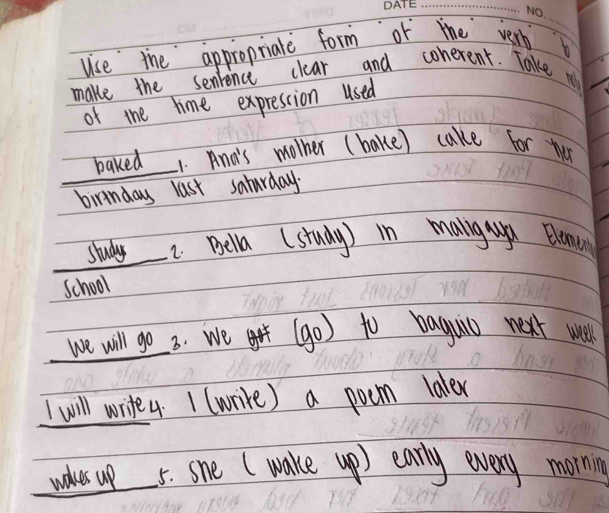 DATE NO.
Use the appropriate form of the verb to
make the sentence clear and coherent. Take
of the time expression used
baked 1. Ana's mother (bake) cake for her
birthday last saturday.
study 2. Bella (study) in maligaya Elemen
School
We will go 3. We (go) to baguio next week
I will write 4. I (write) a poem later
wakes up 5. she (wake up) early every morning